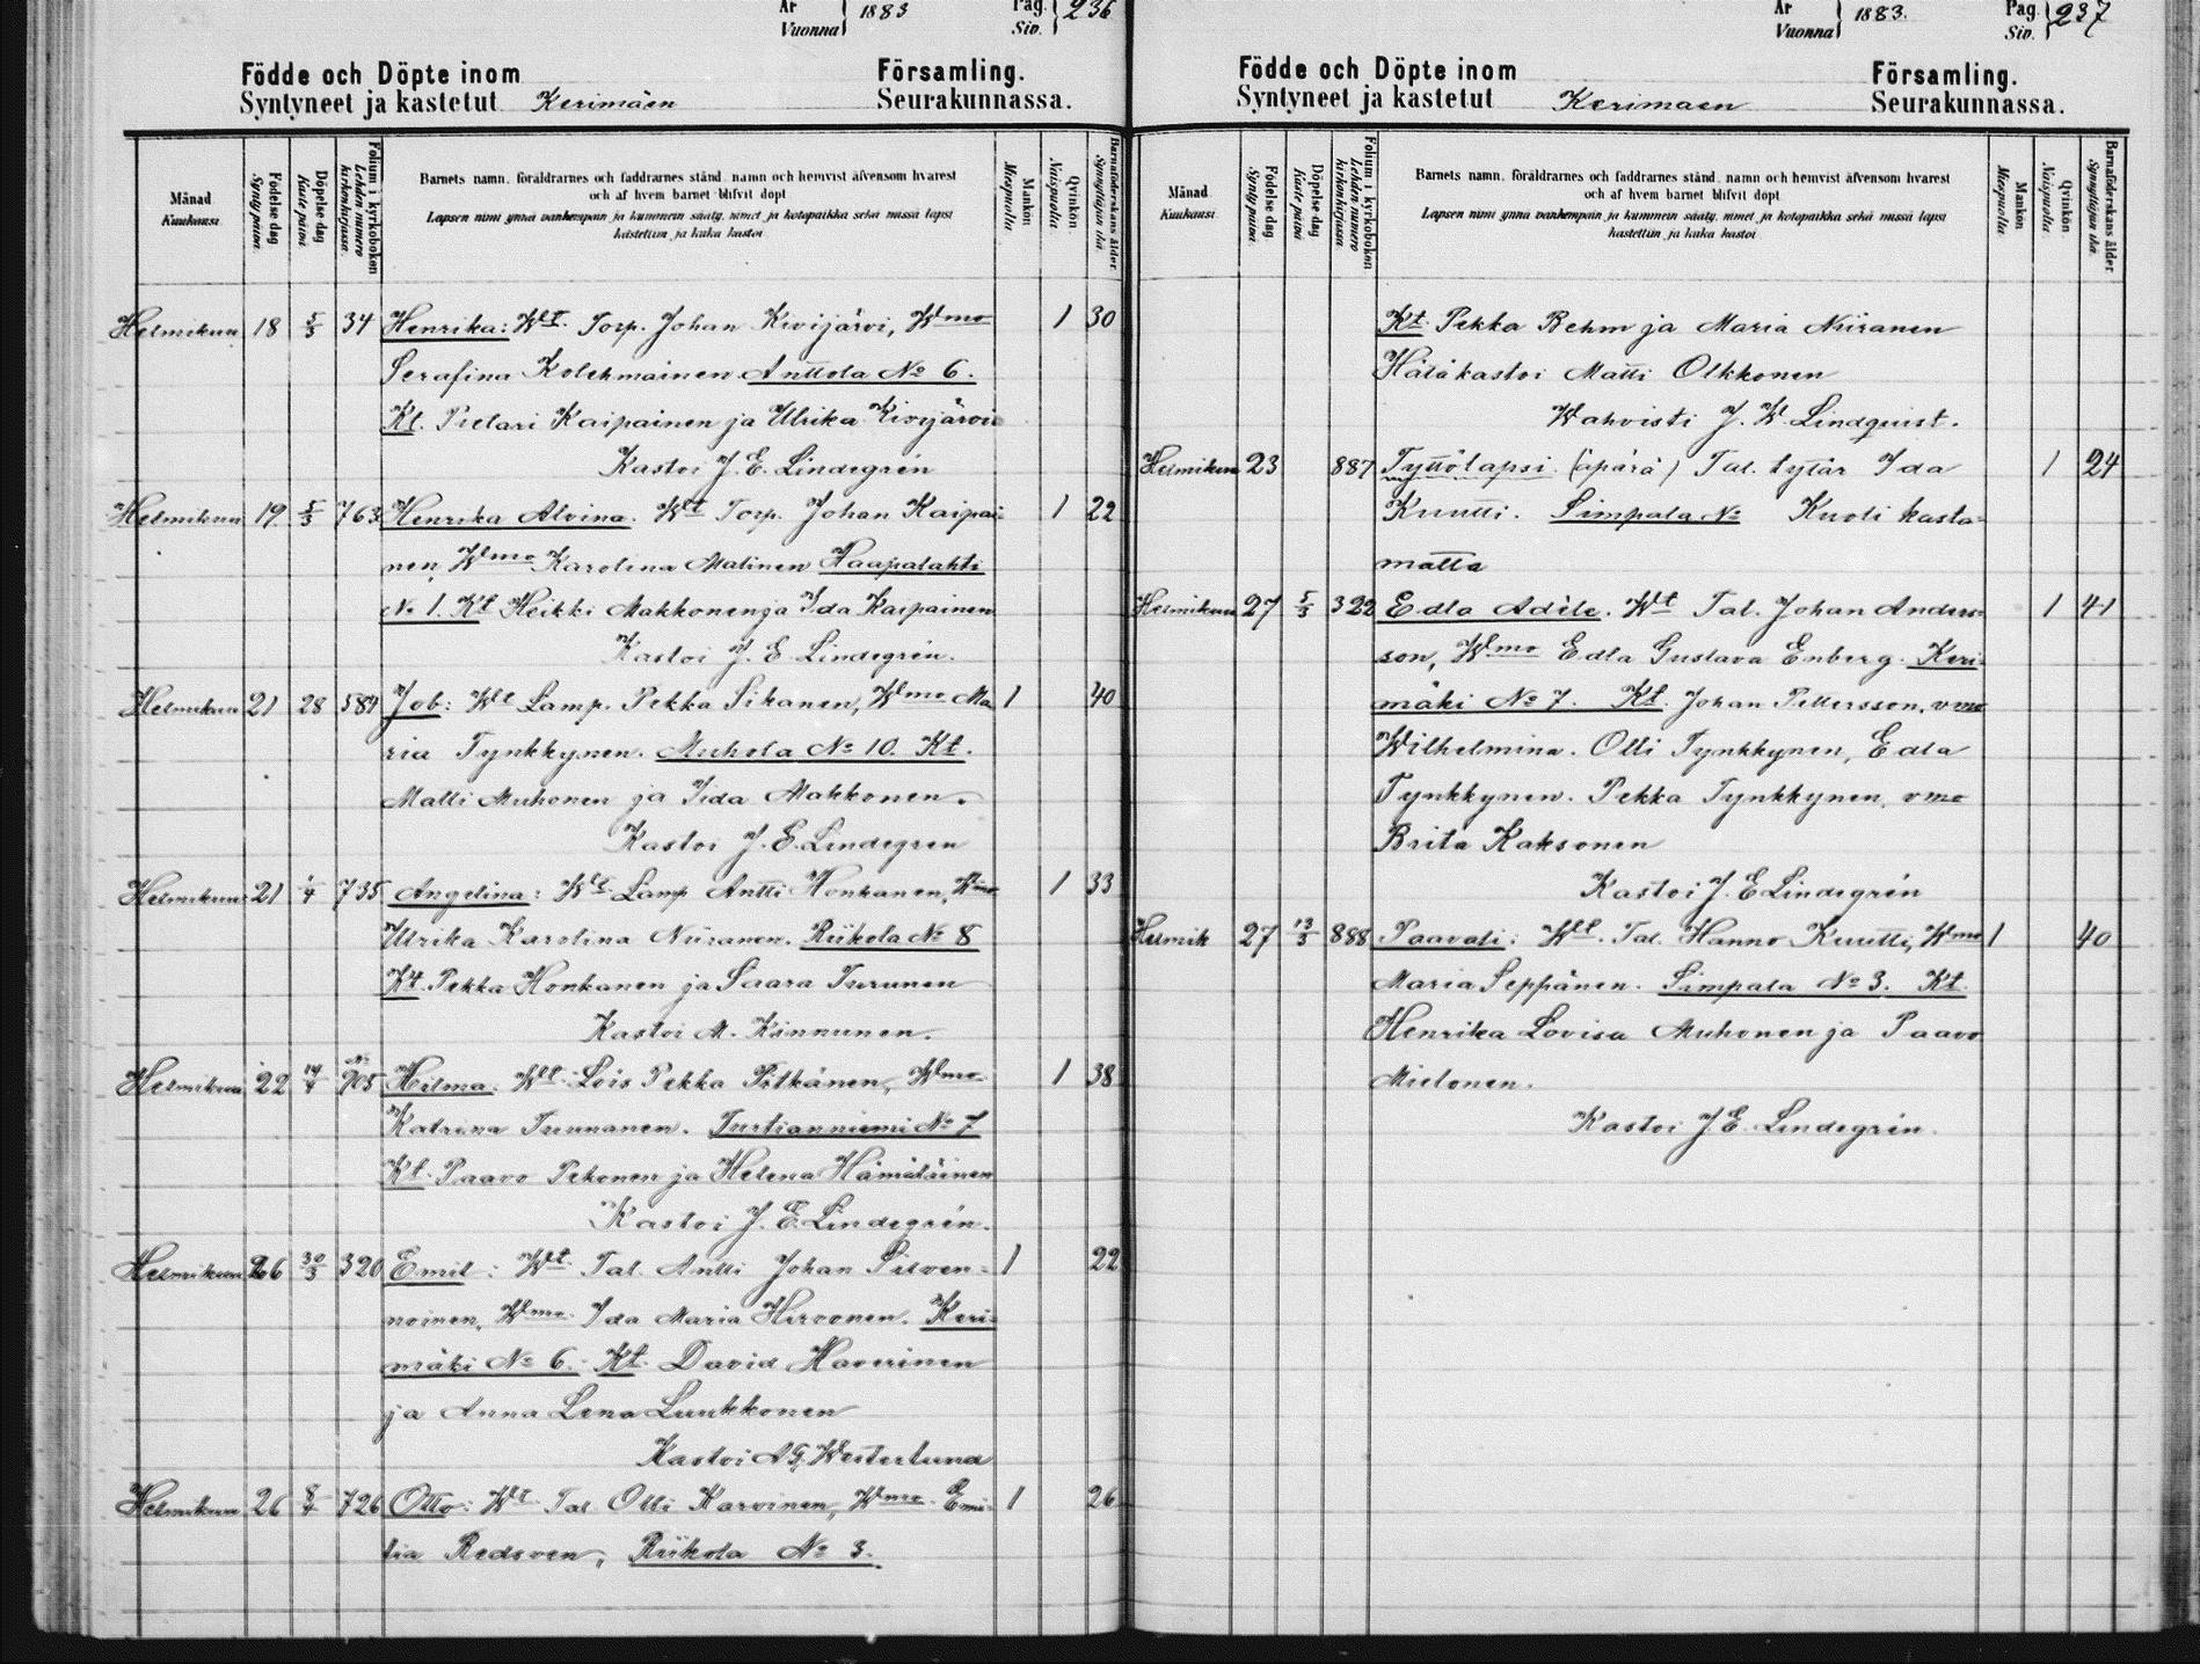 År
Vuonna } 1883 Pag. Siv. } 236
Födde och Döpte inom Församling.
Syntyneet ja kastetut Kerimäen Seurakunnassa.
Månad Kuukausi
Födelse dag Synty päivä
Döpelse dag Kaste päivä
Folium i kyrkoboken Lehden numero kirkonkirjassa
Barnets namn, föräldrarnes och faddrarnes stånd, namn och hemvist äfvensom hvarest
och af hvem barnet blifvit döpt
Lapsen nimi ynnä vanhempain ja kummein sääty, nimet ja kotopaikka sekä missä lapsi
kastettiin ja kuka kastoi
Mankön Miespuolia
Qvinkön Naispuolia
Barnaföderskans ålder Synnyttäjän ikä
Helmikuu 18 5/3 34 Henrika: Wt. Torp. Johan Kivijärvi, Wmo 1 30
Serafina Kolehmainen Anttola No 6.
Kt. Pielari Kaipainen ja Ulrika Kivijärvi
Kastoi J. E. Lindegrén
Helmikuu 19 5/3 763 Henrika Alvina. Wt Torp. Johan Kaipai= 1 22
nen, Wmo Karolina Malinen Haapalahti
No 1. Kt Heikki Makkonen ja Ida Kaipainen
Kastoi J. E Lindegrén.
Helmikuu 21 28 584 Job: Wt Lamp. Pekka Sikanen, Wmo Ma 1 40
ria Tynkkynen. Muhola No 10. Kt.
Matti Muhonen ja Iida Makkonen.
Kastoi J. E. Lindegren
Helmikuu 21 1/4 735 Angelina: Wt. Lamp Antti Honkanen, Wmo 1 33
Ulrika Karolina Niiranen. Riikola No 8
Kt. Pekka Honkanen ja Saara Turunen
Kastoi M. Kinnunen.
Helmikuu 22 14/4 No 905 Helma. Wt. Lois Pekka Pitkänen, Wmo 1 38
Katrina Truunanen. Turtianniemi No 7
Kt. Paavo Pekonen ja Helena Hämäläinen
Kastoi J. E. Lindegrén.
Helmikuu 26 30/3 320 Emil: Wt. Tal. Antti Johan Silven= 1 22
noinen, Wmo. Ida Maria Hirvonen. Keri=
mäki No 6. Kt. David Haverinen
ja Anna Lena Luukkonen
Kastoi A G, Westerlund
Helmikuu 26 8/4 726 Otto: Wt Tal Olli Karvinen, Wmo. Emi= 1 26
lia Redsven, Riikola No 3.
År
Vuonna } 1883. Pag. Siv. } 237
Födde och Döpte inom Församling.
Syntyneet ja kastetut Kerimaen Seurakunnassa.
Månad Kuukausi
Födelse dag Synty päivä
Döpelse dag Kaste päivä
Folium i kyrkoboken Lehden numero kirkonkirjassa
Barnets namn, föräldrarnes och faddrarnes stånd, namn och hemvist äfvensom hvarest
och af hvem barnet blifvit döpt
Lapsen nimi ynnä vanhempain ja kummein sääty, nimet ja kotopaikka sekä missä lapsi
kastettiin ja kuka kastoi
Mankön Miespuolia
Qvinkön Naispuolia
Barnaföderskans ålder Synnyttäjän ikä
Kt. Pekka Behm ja Maria Niiranen
Hätäkastoi Matti Olkkonen
Wahvisti J. W. Lindquist.
Helmikuu 23 887 Tyttölapsi. (äpärä) Tal. tytär Ida 1 24
Kuutti. Simpala No Kuoli kasta=
matta
Helmikuu 27 5/3 322 Edla Adéle. Wt Tal. Johan Anders= 1 41
son, Wmo Edla Gustava Enberg. Keri=
mäki No 7. Kt. Johan Pettersson, vmo
Wilhelmina. Olli Tynkkynen, Edla
Tynkkynen. Pekka Tynkkynen, vmo
Brita Kaksonen
Kastoi J. E Lindegrén
Helmik 27 13/3 888 Paavali: Wt. Tal. Hanno Kuutti, Wmo 1 40
Maria Seppänen. Simpala No 3. Kt.
Henrika Lovisa Muhonen ja Paavo
Mielonen.
Kastoi J. E. Lindegrén.